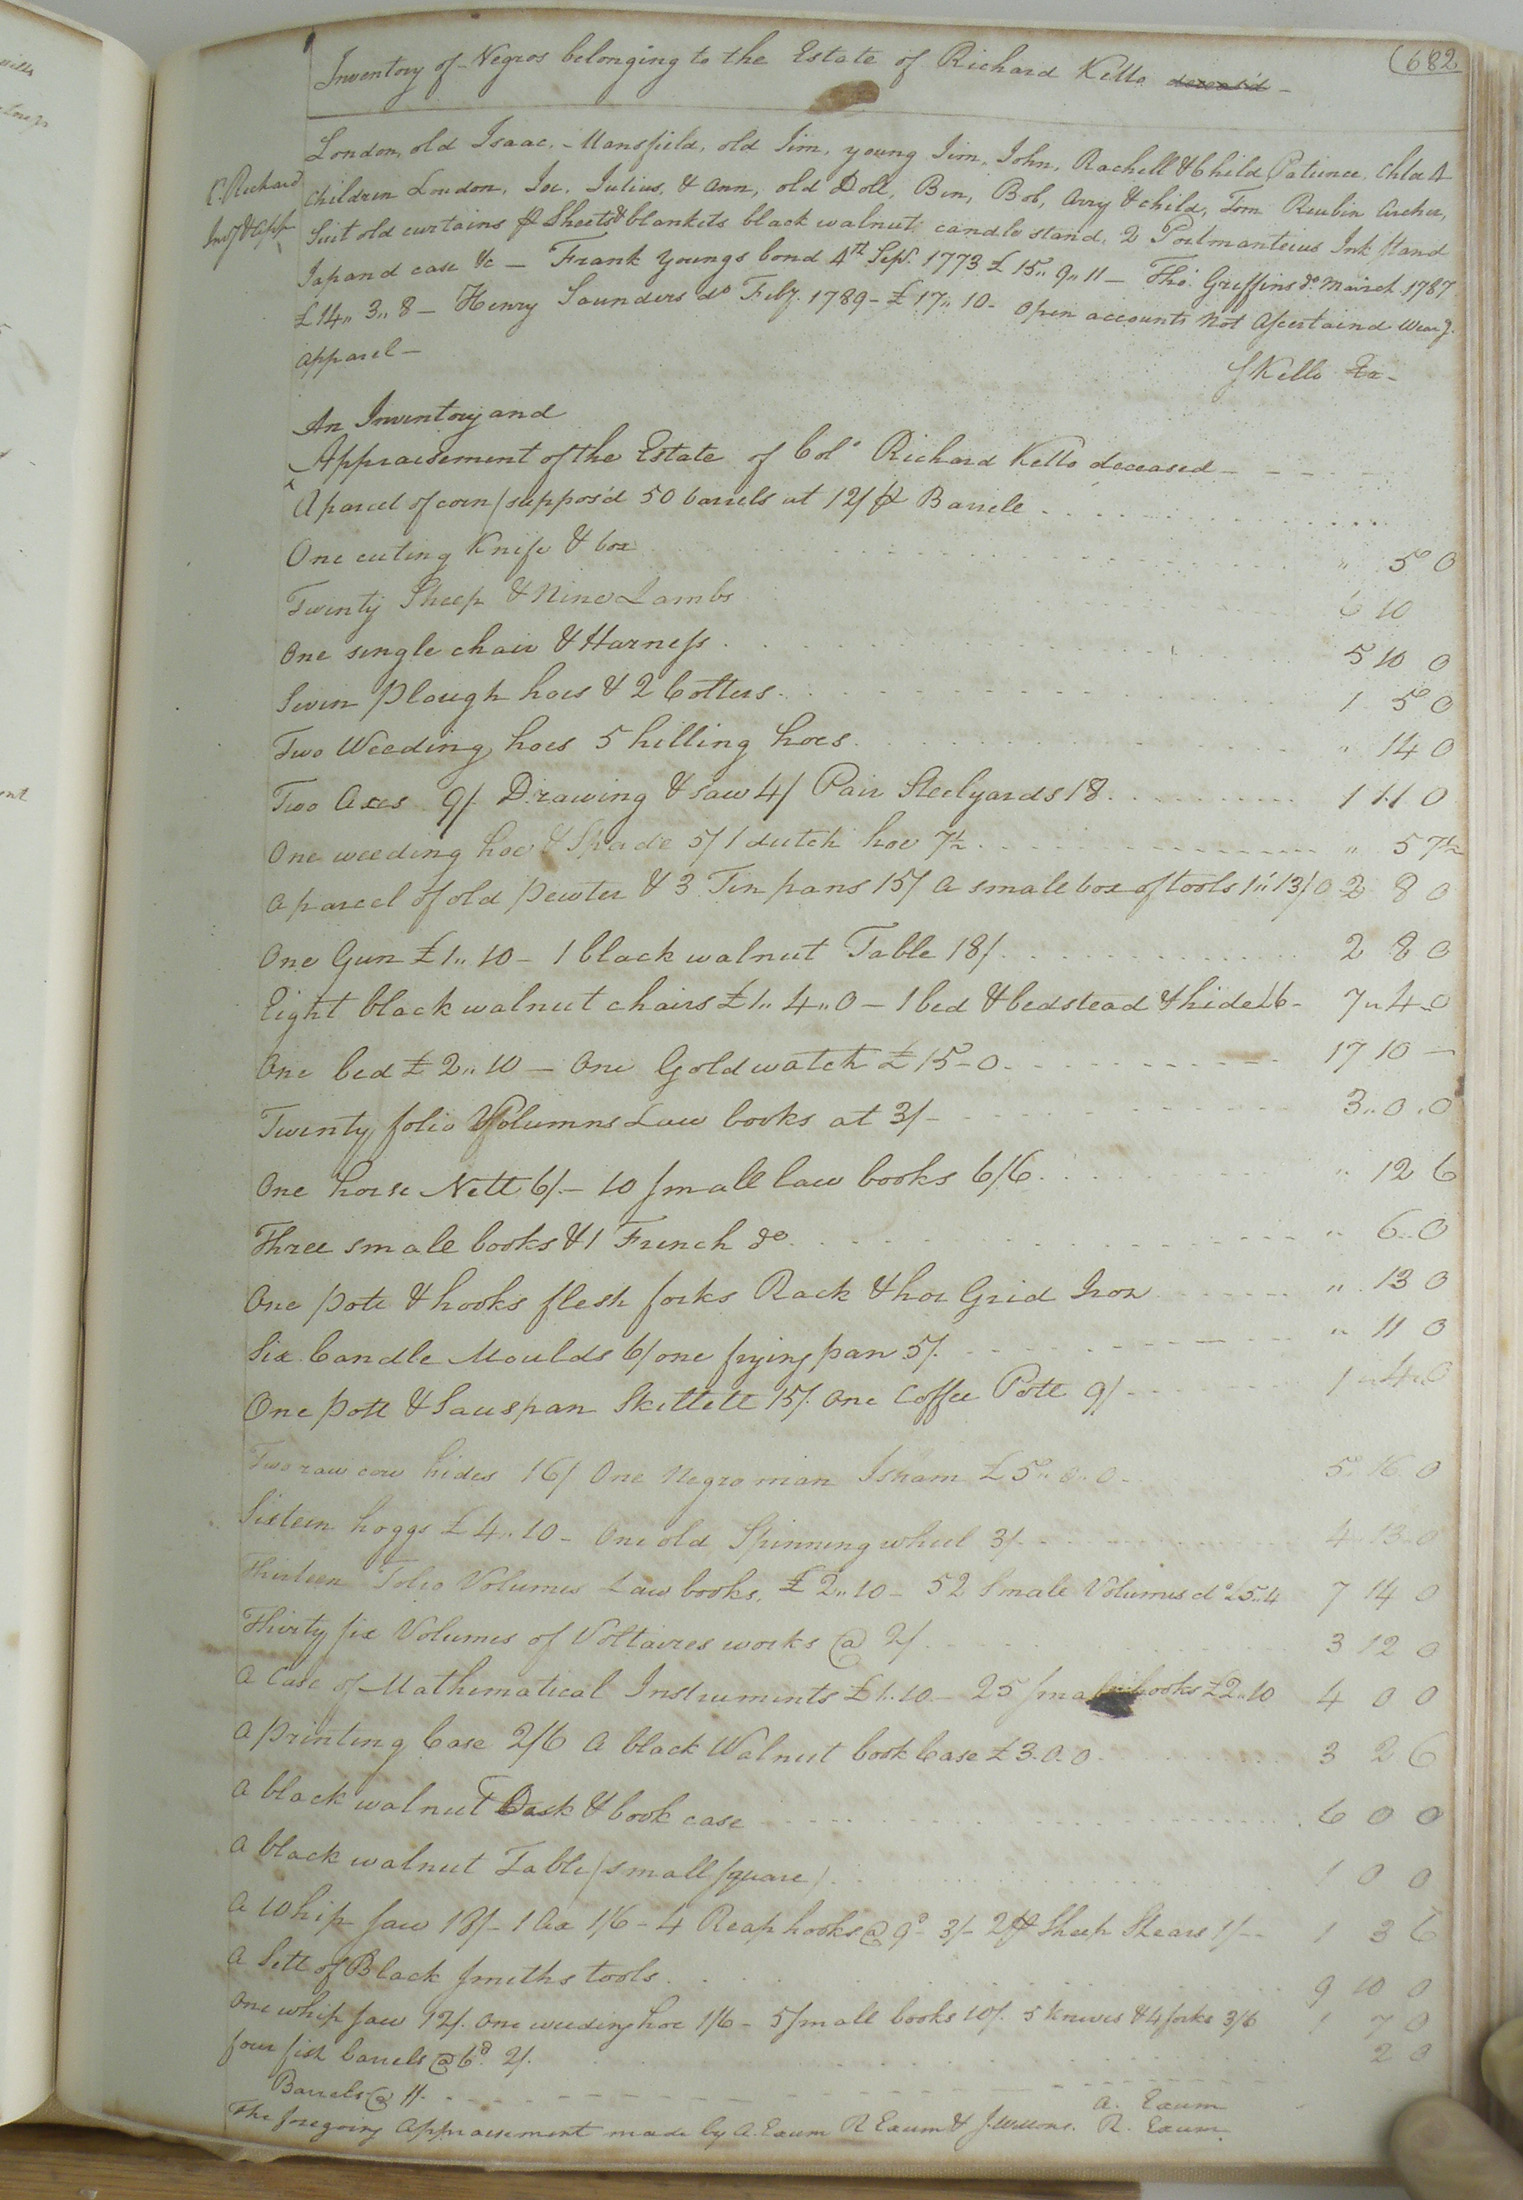 (682
Inventory of Negros belonging to the Estate of Richard Kello deceas'd -
London, old Isaac, - Mansfield, old Jim, young Jim, John, Rachell & Child Patience, Chloe 4
Children London, Joe, Julius, & Ann, old Doll, Ben, Bob, Amy & child, Tom Reubin Archer,
C. Richard
Invy & App
Suit old curtains Sheets & blankets black walnut candle stand, 2 Portmanteius Ink stand
Japand case &c - Frank Youngs bond 4th Sepr. 1773 £15,, 9,, 11 - Tho: Griffins do. March 1787
£14,, 3,, 8 - Henry Saunders do Feby. 1789 - £17,, 10 - open accounts not Ascertaind Wearg.
apparel -
S Kello Ex -
An Inventory and
Appraisement of the Estate of Colo Richard Kello deceased -
A parcel of corn (suppos'd 50 barrels at 12/ ⅌ Barrele
One cuting Knife & box " 5 0
Twenty Sheep & Nine Lambs 6 10
One single chair & Harness 5 10 0
Seven Plough hoes & 2 Colters 1 5 0
Two Weeding hoes 5 hilling hoes " 14 0
Two Axes 9/ Drawing & saw 4/ Pair Steelyards 18 1 11 0
One weeding hoe & Spade 5/ 1 dutch hoe 7½ " 5 7½
A parcel of old Pewter & 3 Tin pans 15/ a small box of tools 1" 13/ 0 2 8 0
One Gun £1,, 10 - 1 black walnut Table 18/ 2 8 0
Eight black walnut chairs £1,, 4,, 0 - 1 bed & bedstead & hide £6 - 7 " 4 - 0
One bed £2,, 10 - One Gold watch £15 - 0 17 10 -
Twenty folio Volumns Law books at 3/ - 3,, 0,, 0
One horse Nett 6/ - 10 small law books 6/6 " 12 6
Three small books & 1 French do " 6,, 0
One pott & hooks flesh forks Rack & hoe Grid Iron " 13 0
Six Candle Moulds 6/ one frying pan 5/ " 11 0
One pott & Sauspan Skittett 15/. One Coffee Pott 9/ 1 " 4 " 0
Two raw cow hides 16/ One Negro man Isham £5,, 0,, 0 - 5 16 0
Sixteen hoggs £4,, 10 - One old Spinning wheel 3/ 4 13 0
Thirteen Folio Volumes Law books, £2,, 10 - 52 Small Volumes do £5,,4 7 14 0
Thirty six Volumes of Voltaires works @ 2/ 3 12 0
A Case of Mathematical Instruments £1,, 10 - 25 small books £2,, 10 4 0 0
A printing Case 2/6 A black Walnut book Case £3. 0. 0 3 2 6
A black walnut Desk & book case 6 0 0
A black walnut Table (small square) 1 0 0
A Whip saw 18/ - 1 Ax 1/6 - 4 Reap hooks @ 9d - 3/ - 2 Sheep Shears 1/ - 1 3 6
A Sett of Black smiths tools 9 10 0
One whip saw 12/. One weeding hoe 1/6 - 5 small books 10/. 5 knives & 4 forks 3/6 1 7 0
four fish barrels @ 6d. 2/. 2 0
Barrels @ 1/.
The foregoing Appraisement made by A. Exum R Exum & J. Williams. A. Exum
R. Exum